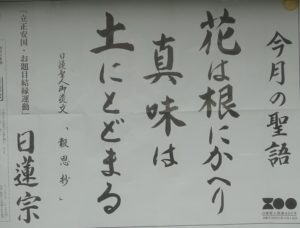 今月の聖語
花は根にかへり
真味は
土にとどまる
日蓮聖人御遺文「報恩抄」
「立正安国・お題目結縁運動」
日蓮宗